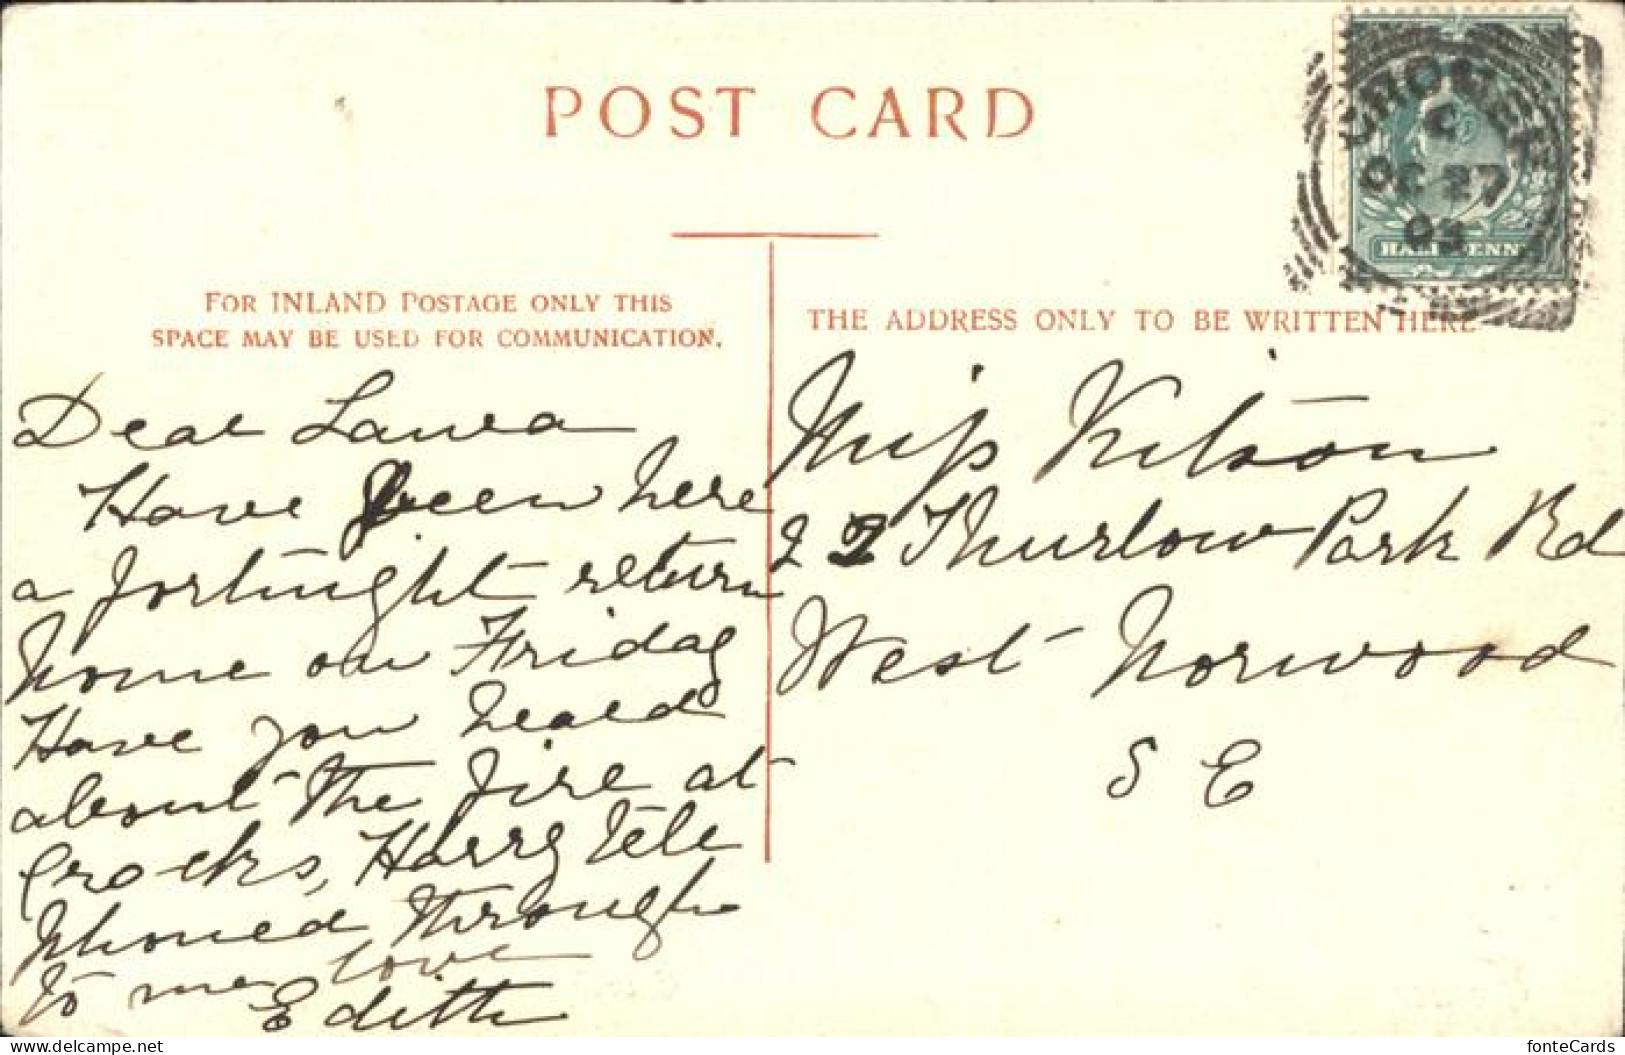 POST CARD
CROMER
C
OC 27
03
HALFPENNY
FOR INLAND POSTAGE ONLY THIS
SPACE MAY BE USED FOR COMMUNICATION.
THE ADDRESS ONLY TO BE WRITTEN HERE
Dear Laura
Have been here
a fortnight return
home on Friday
Have you heard
about the fire at
Crocks, Harry tele
phoned through
to me love
Edith
Miss Kitson
22 Thurlow Park Rd
West Norwood
S E
www.delcampe.net
fonteCards